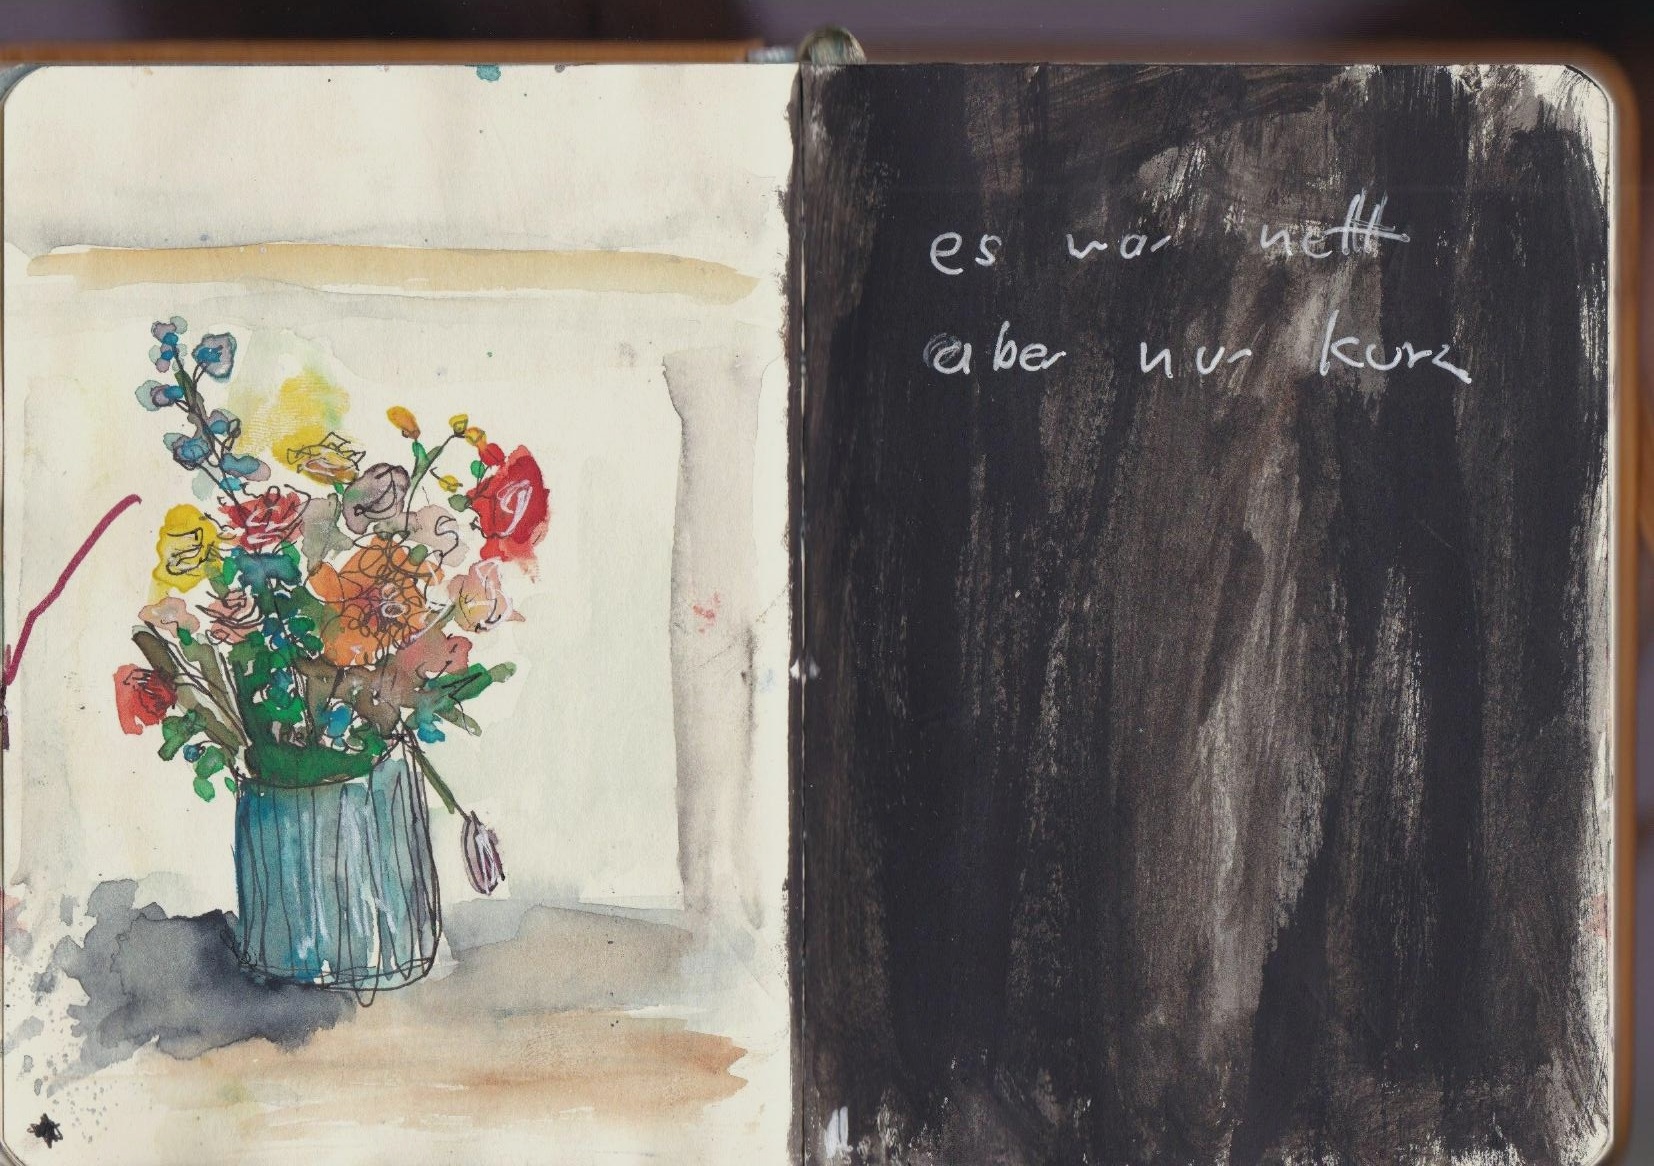 es war nett
aber nur kurz